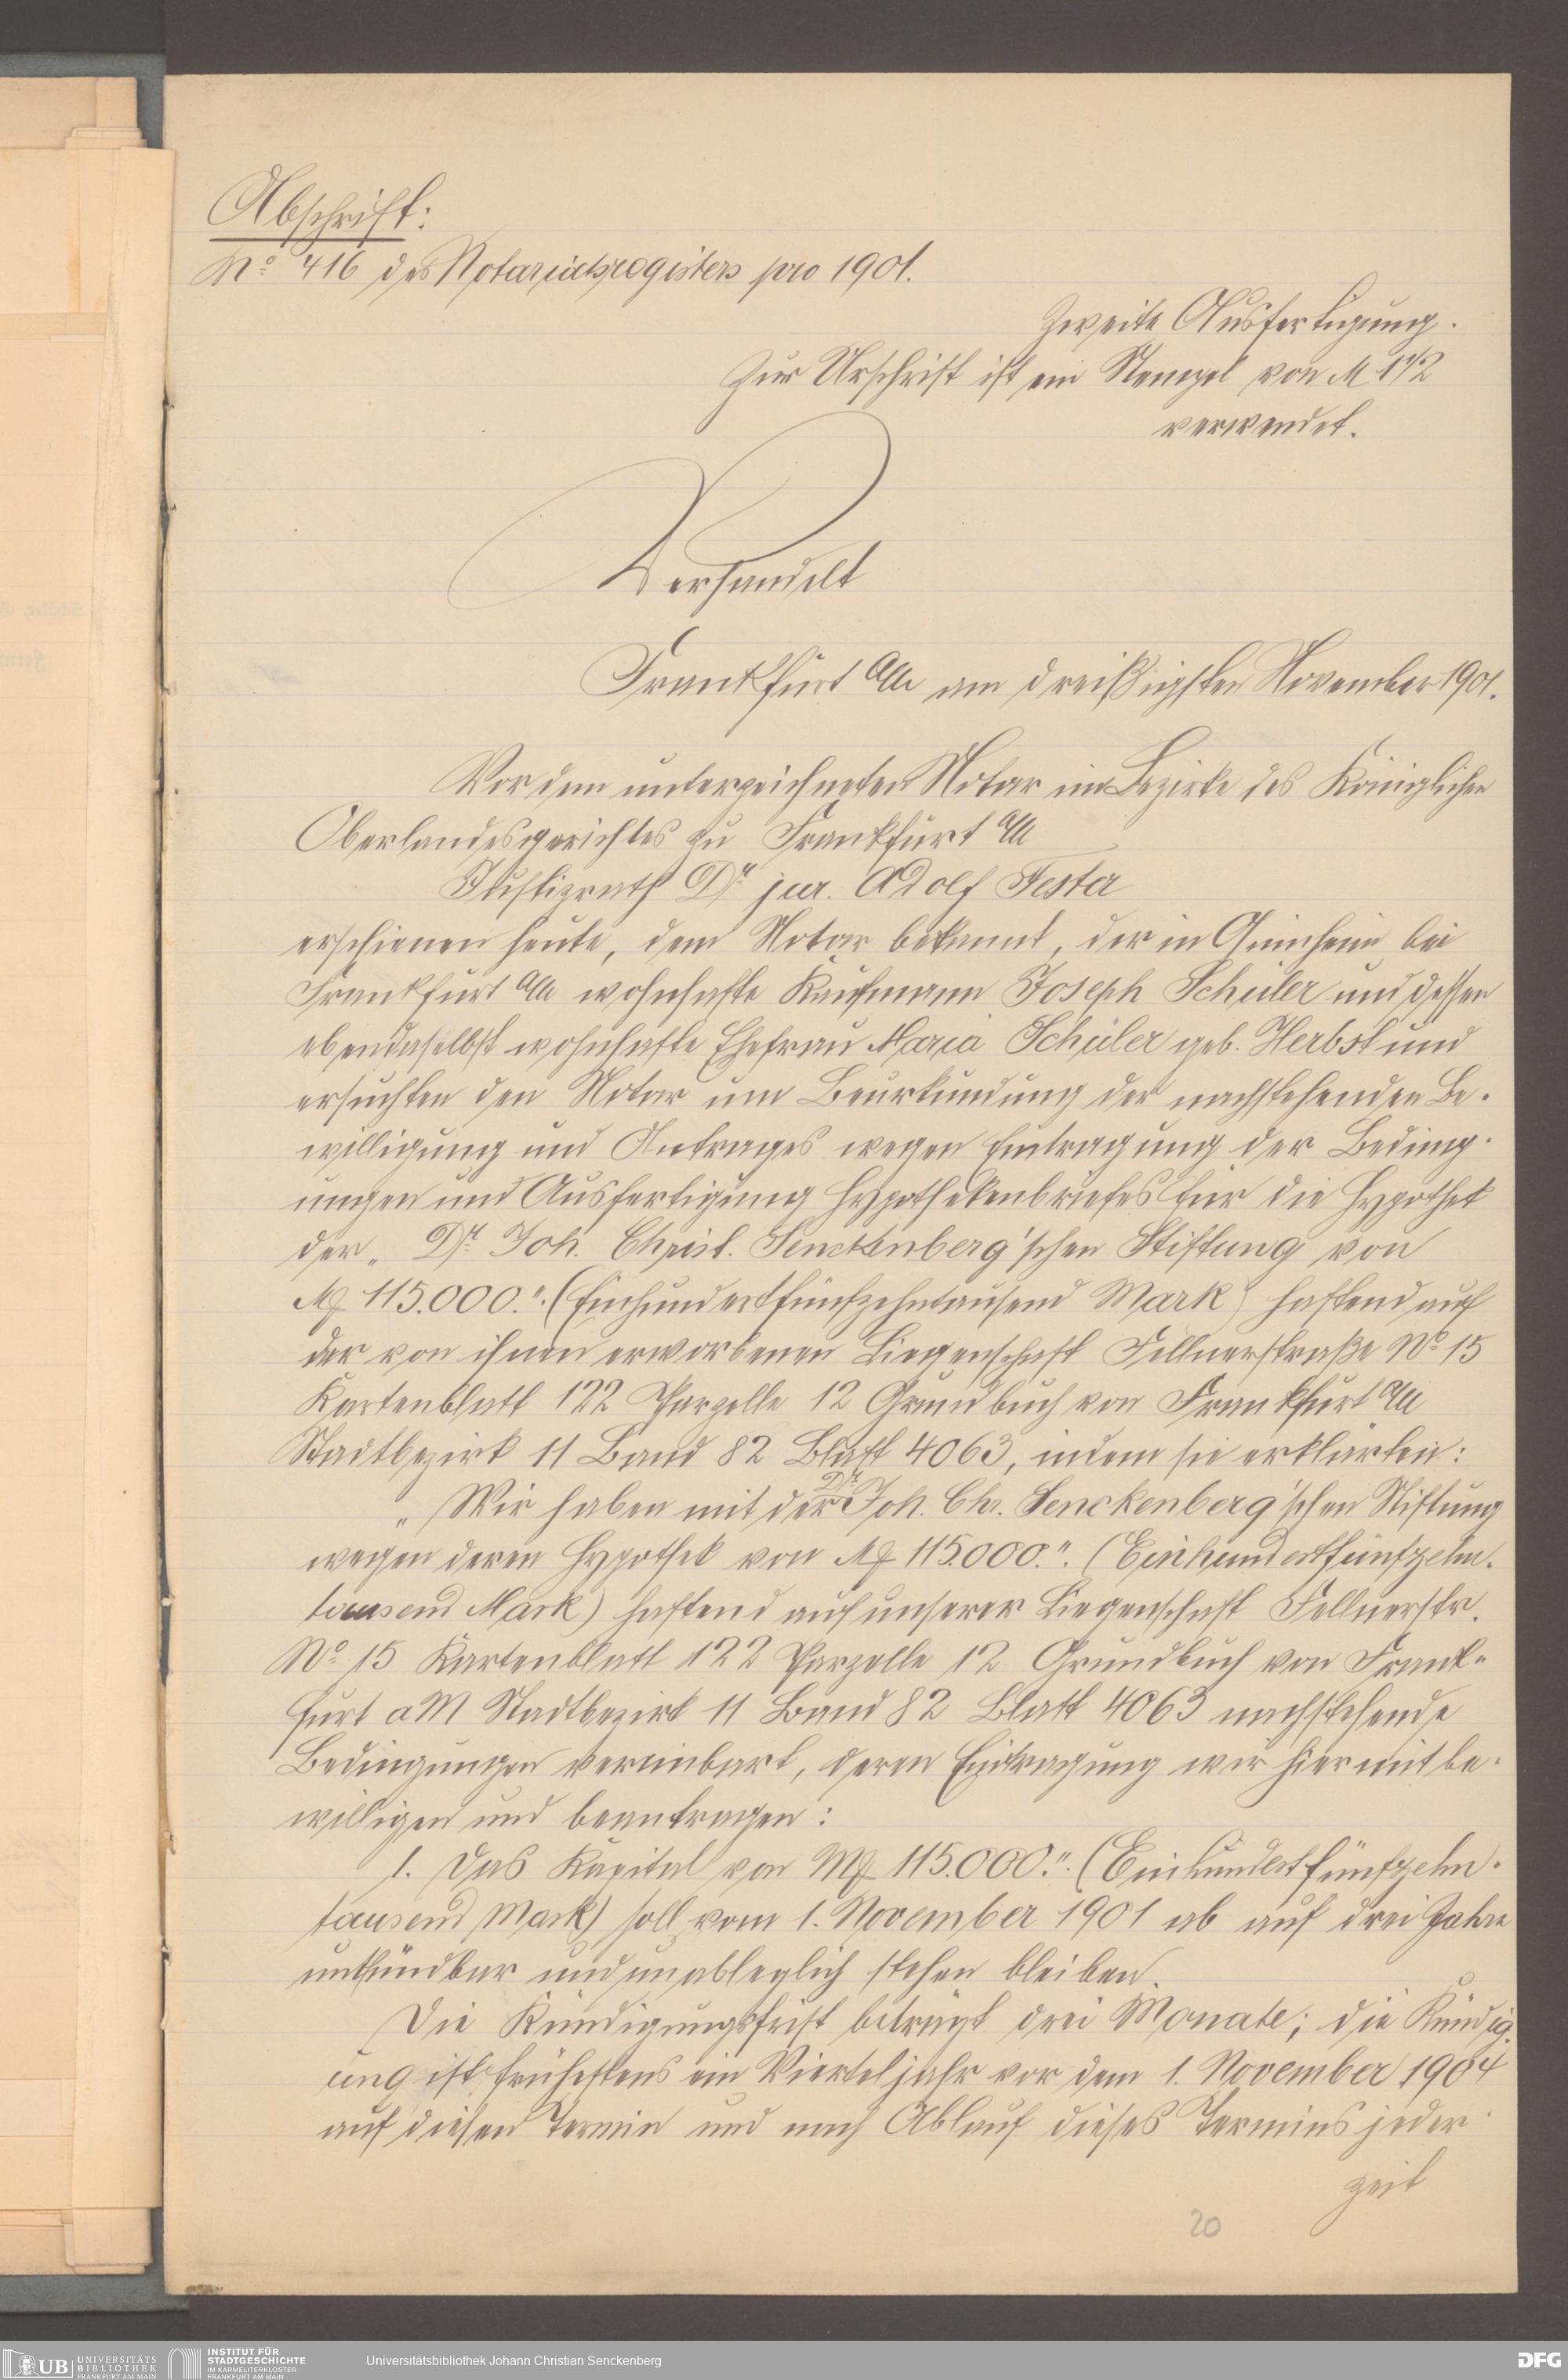 Abschrift:
No 416 des Notariatsregisters pro 1901.
Zweite Ausfertigung.
Zur Urschrift ist ein Stempel von M 1 1/2
verwendet.
Verhandelt
Frankfurt a/M am dreißigsten November 1901.
Vor dem unterzeichneten Notar im Bezirke des Königlichen
Oberlandesgerichtes zu Frankfurt a/M
Justizrath Dr jur. Adolf Fester
erschienen heute, dem Notar bekannt, der in Ginnheim bei
Frankfurt a/M wohnhafte Kaufmann Joseph Schüler und dessen
ebendaselbst wohnhafte Ehefrau Maria Schüler geb. Herbst und
ersuchten den Notar um Beurkundung der nachstehenden Be-
willigung und Antrages wegen Eintragung der Beding-
ungen und Ausfertigung Hypothekenbriefes für die Hypothek
der „ Dr Joh. Christ. Senckenberg'schen Stiftung von
M 115.000.". (Einhundertfünfzehntausend Mark) haftend auf
der von ihnen erworbenen Liegenschaft Fellnerstraße No 15
Kartenblatt 122 Parzelle 12 Grundbuch von Frankfurt a/M
Stadtbezirk 11 Band 82 Blatt 4063, indem sie erklärten:
„ Wir haben mit der Dr Joh. Chr. Senckenberg'schen Stiftung
wegen deren Hypothek von M 115.000.". (Einhundertfünfzehn-
tausend Mark) haftend auf unserer Liegenschaft Fellnerstr.
No 15 Kartenblatt 122 Parzelle 12 Grundbuch von Frank-
furt a M Stadtbezirk 11 Band 82 Blatt 4063 nachstehende
Bedingungen vereinbart, deren Eintragung wir hiermit be-
willigen und beantragen:
1. Das Kapital von M 115.000.". (Einhundertfünfzehn-
tausend Mark) soll vom 1. November 1901 ab auf drei Jahre
unkündbar und unableglich stehen bleiben.
Die Kündigungsfrist beträgt drei Monate; die Kündig-
ung ist frühestens ein Vierteljahr vor dem 1. November 1904
auf diesen Termin und nach Ablauf dieses Termins jeder-
zeit
20
UB UNIVERSITÄTS
BIBLIOTHEK
FRANKFURT AM MAIN
INSTITUT FÜR
STADTGESCHICHTE
IM KARMELITERKLOSTER
FRANKFURT AM MAIN
Universitätsbibliothek Johann Christian Senckenberg
DFG